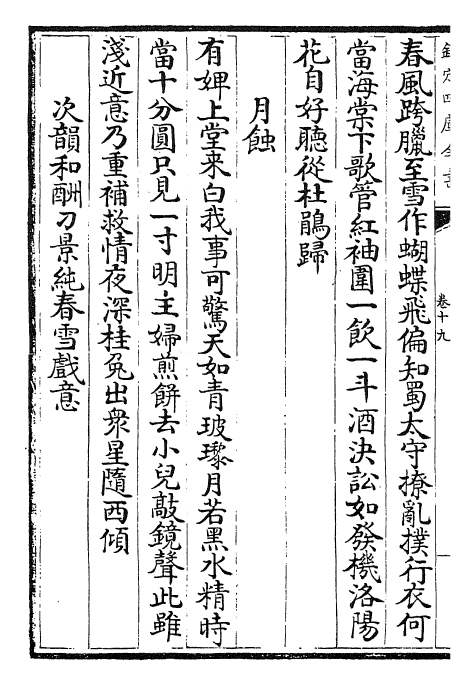 欽定四庫全書
卷十九
春風跨臘至雪作蝴蝶飛偏知蜀太守撩亂撲行衣何
當海棠下歌管紅袖圍一飲一斗酒決訟如發機洛陽
花自好聽從杜鵑歸
月蝕
有婢上堂来白我事可驚天如青玻瓈月若黑水精時
當十分圓只見一寸明主婦煎餅去小兒敲鏡聲此雖
淺近意乃重補救情夜深桂兔出衆星隨西傾
次韻和酬刀景純春雪戲意